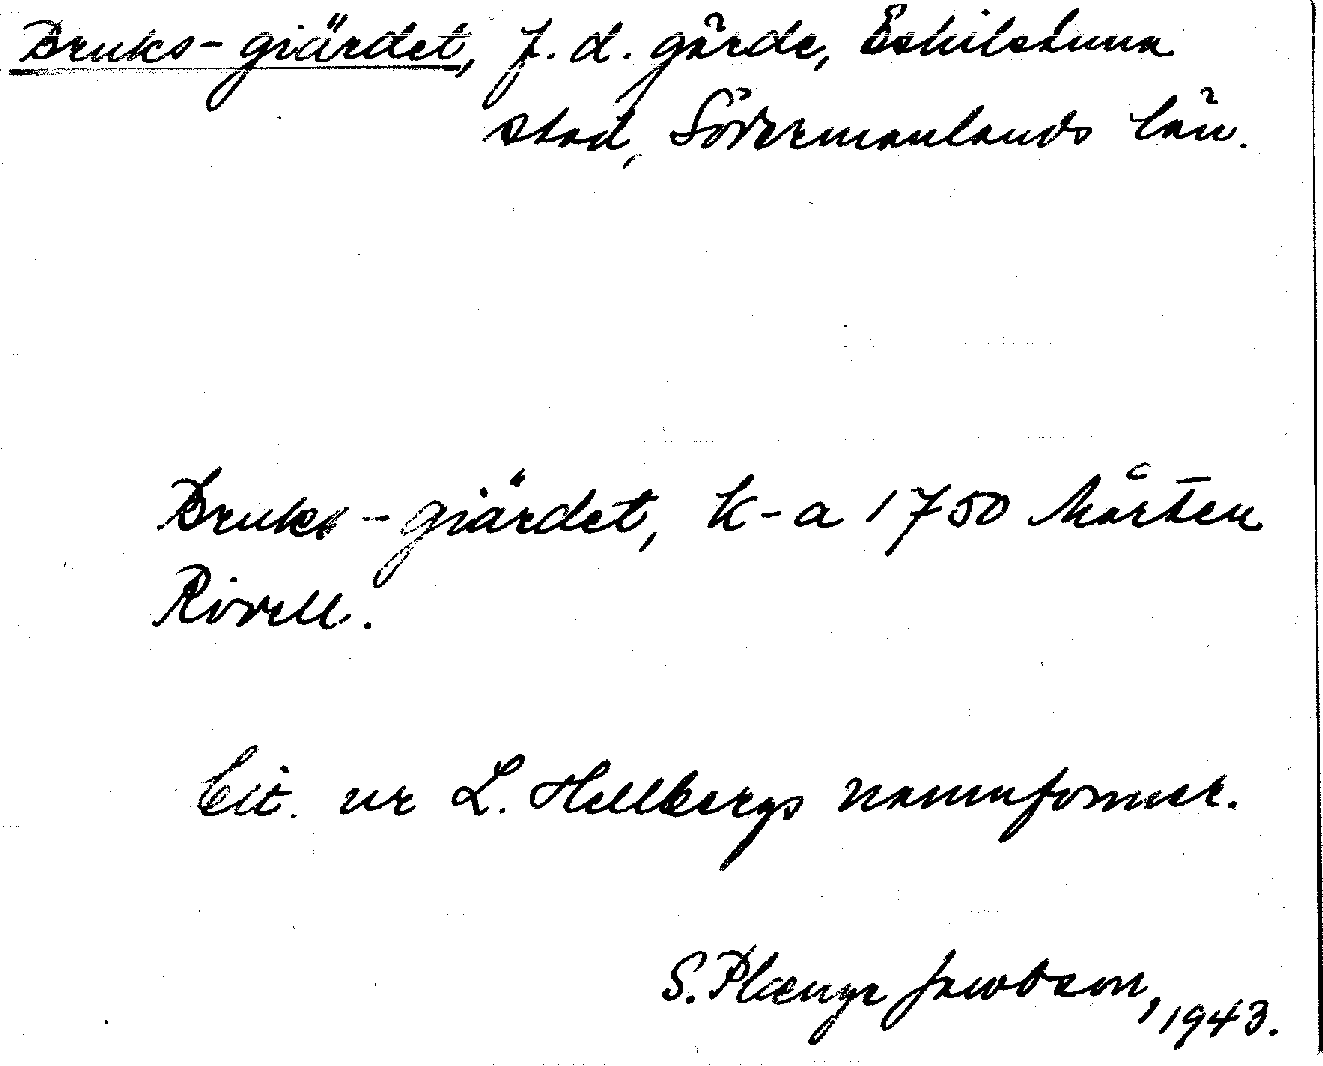 Bruks-giärdet, f.d. gärde, Eskilstuna
stad, Södermanlands län.
Bruks-giärdet, k-a 1750 Mårten
Rivell.
Cit. ur L. Hellbergs namnformer.
S. Plænge Jacobson, 1943.